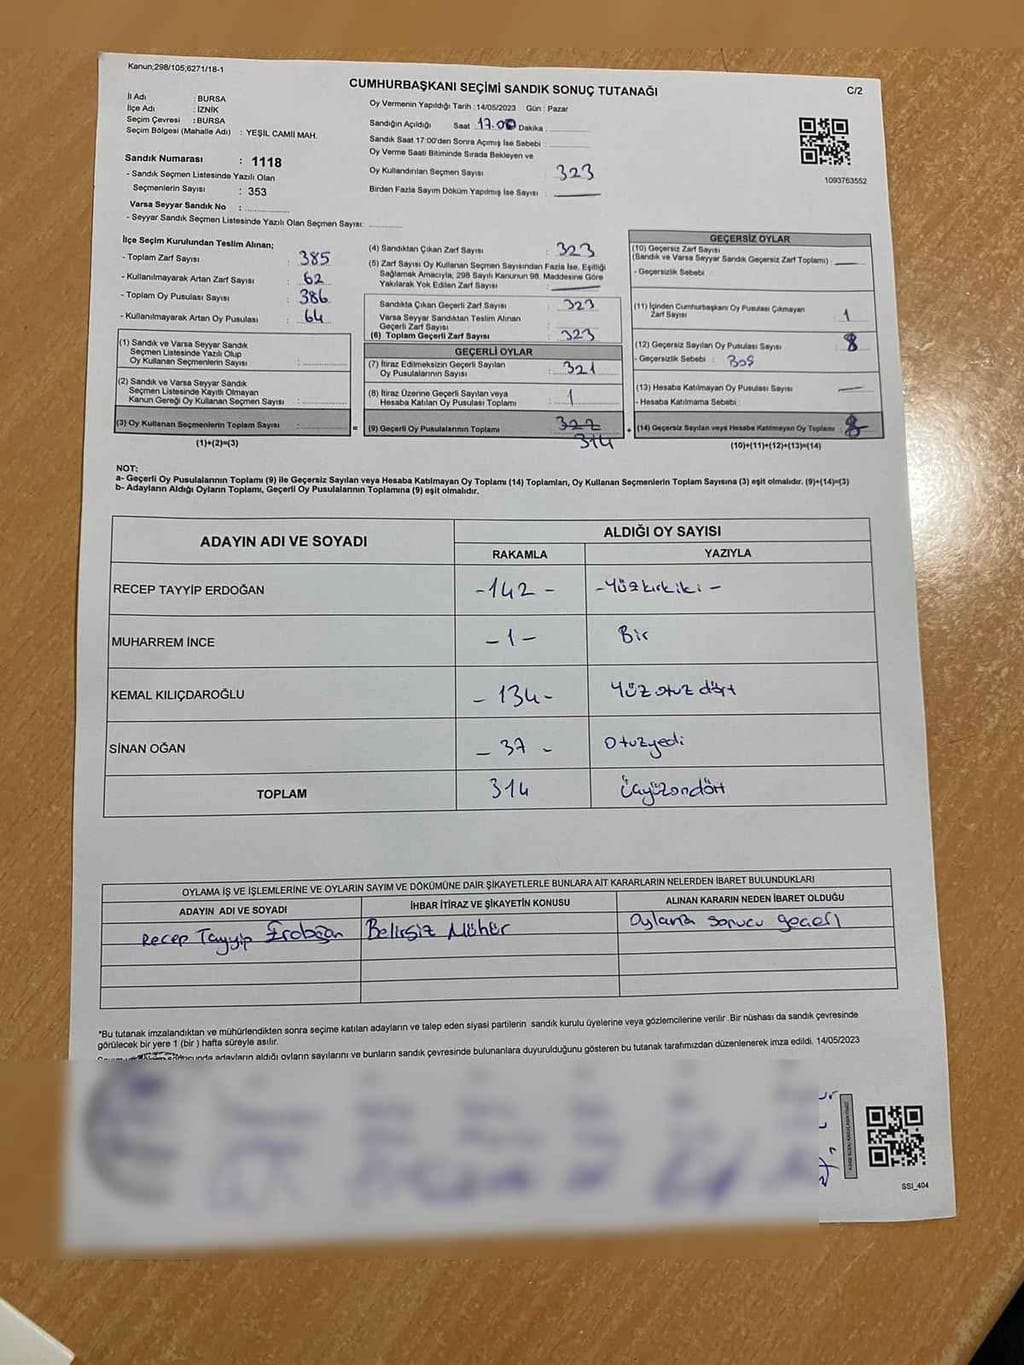 Kanun;298/105;6271/18-1
CUMHURBAŞKANI SEÇİMİ SANDIK SONUÇ TUTANAĞI
C/2
İl Adı : BURSA
İlçe Adı : İZNİK
Seçim Çevresi : BURSA
Seçim Bölgesi (Mahalle Adı) : YEŞİL CAMİİ MAH.
Sandık Numarası : 1118
- Sandık Seçmen Listesinde Yazılı Olan
Seçmenlerin Sayısı : 353
Varsa Seyyar Sandık No :
- Seyyar Sandık Seçmen Listesinde Yazılı Olan Seçmen Sayısı:
Oy Vermenin Yapıldığı Tarih :14/05/2023 Gün : Pazar
Sandığın Açıldığı Saat 17.00 Dakika :
Sandık Saat 17:00'den Sonra Açımış İse Sebebi :
Oy Verme Saati Bitiminde Sırada Bekleyen ve
Oy Kullandırılan Seçmen Sayısı : 323
Birden Fazla Sayım Döküm Yapılmış İse Sayısı :
1093763552
İlçe Seçim Kurulundan Teslim Alınan;
- Toplam Zarf Sayısı : 385
- Kullanılmayarak Artan Zarf Sayısı : 62
- Toplam Oy Pusulası Sayısı : 386
- Kullanılmayarak Artan Oy Pusulası : 64
(1) Sandık ve Varsa Seyyar Sandık
Seçmen Listesinde Yazılı Olup
Oy Kullanan Seçmenlerin Sayısı :
(2) Sandık ve Varsa Seyyar Sandık
Seçmen Listesinde Kayıtlı Olmayan
Kanun Gereği Oy Kullanan Seçmen Sayısı :
(3) Oy Kullanan Seçmenlerin Toplam Sayısı :
(1)+(2)=(3)
(4) Sandıktan Çıkan Zarf Sayısı : 323
(5) Zarf Sayısı Oy Kullanan Seçmen Sayısından Fazla İse, Eşitliği
Sağlamak Amacıyla, 298 Sayılı Kanunun 98. Maddesine Göre
Yakılarak Yok Edilen Zarf Sayısı :
Sandıkta Çıkan Geçerli Zarf Sayısı : 323
Varsa Seyyar Sandıktan Teslim Alınan
Geçerli Zarf Sayısı :
(6) Toplam Geçerli Zarf Sayısı : 323
GEÇERLİ OYLAR
(7) İtiraz Edilmeksizin Geçerli Sayılan
Oy Pusulalarının Sayısı : 321
(8) İtiraz Üzerine Geçerli Sayılan veya
Hesaba Katılan Oy Pusulası Toplamı : 1
= (9) Geçerli Oy Pusulalarının Toplamı : 322
314
GEÇERSİZ OYLAR
(10) Geçersiz Zarf Sayısı
(Sandık ve Varsa Seyyar Sandık Geçersiz Zarf Toplamı) :
- Geçersizlik Sebebi :
(11) İçinden Cumhurbaşkanı Oy Pusulası Çıkmayan
Zarf Sayısı : 1
(12) Geçersiz Sayılan Oy Pusulası Sayısı : 8
- Geçersizlik Sebebi : Boş
(13) Hesaba Katılmayan Oy Pusulası Sayısı :
- Hesaba Katılmama Sebebi :
+ (14) Geçersiz Sayılan veya Hesaba Katılmayan Oy Toplamı : 8
(10)+(11)+(12)+(13)=(14)
NOT:
a- Geçerli Oy Pusulalarının Toplamı (9) ile Geçersiz Sayılan veya Hesaba Katılmayan Oy Toplamı (14) Toplamları, Oy Kullanan Seçmenlerin Toplam Sayısına (3) eşit olmalıdır. (9)+(14)=(3)
b- Adayların Aldığı Oyların Toplamı, Geçerli Oy Pusulalarının Toplamına (9) eşit olmalıdır.
ADAYIN ADI VE SOYADI
ALDIĞI OY SAYISI
RAKAMLA YAZIYLA
RECEP TAYYİP ERDOĞAN -142- -Yüzkırkiki-
MUHARREM İNCE -1- Bir
KEMAL KILIÇDAROĞLU -134- Yüz otuz dört
SİNAN OĞAN -37- Otuzyedi
TOPLAM 314 Üçyüzondört
OYLAMA İŞ VE İŞLEMLERİNE VE OYLARIN SAYIM VE DÖKÜMÜNE DAİR ŞİKAYETLERLE BUNLARA AİT KARARLARIN NELERDEN İBARET BULUNDUKLARI
ADAYIN ADI VE SOYADI İHBAR İTİRAZ VE ŞİKAYETİN KONUSU ALINAN KARARIN NEDEN İBARET OLDUĞU
Recep Tayyip Erdoğan Belirsiz Mühür Oylama sonucu geçerli
*Bu tutanak imzalandıktan ve mühürlendikten sonra seçime katılan adayların ve talep eden siyasi partilerin sandık kurulu üyelerine veya gözlemcilerine verilir. Bir nüshası da sandık çevresinde
görülecek bir yere 1 (bir) hafta süreyle asılır.
adayların aldığı oyların sayılarını ve bunların sandık çevresinde bulunanlara duyurulduğunu gösteren bu tutanak tarafımızdan düzenlenerek imza edildi. 14/05/2023
SSI_404